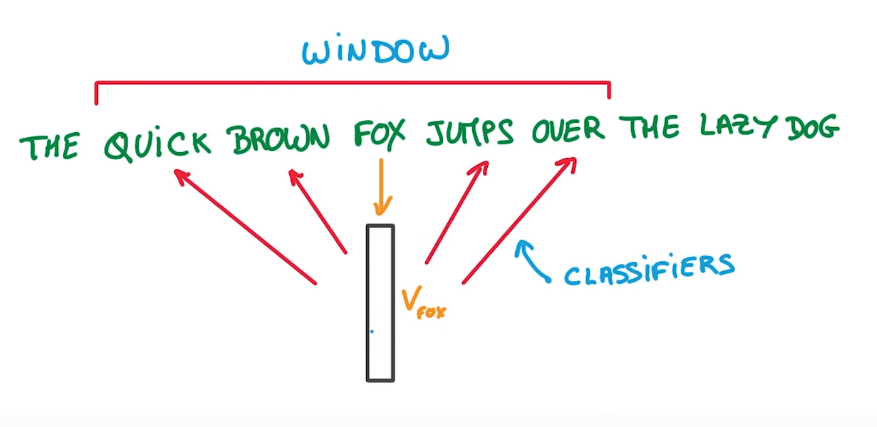 WINDOW
THE QUICK BROWN FOX JUMPS OVER THE LAZY DOG
VFOX
CLASSIFIERS